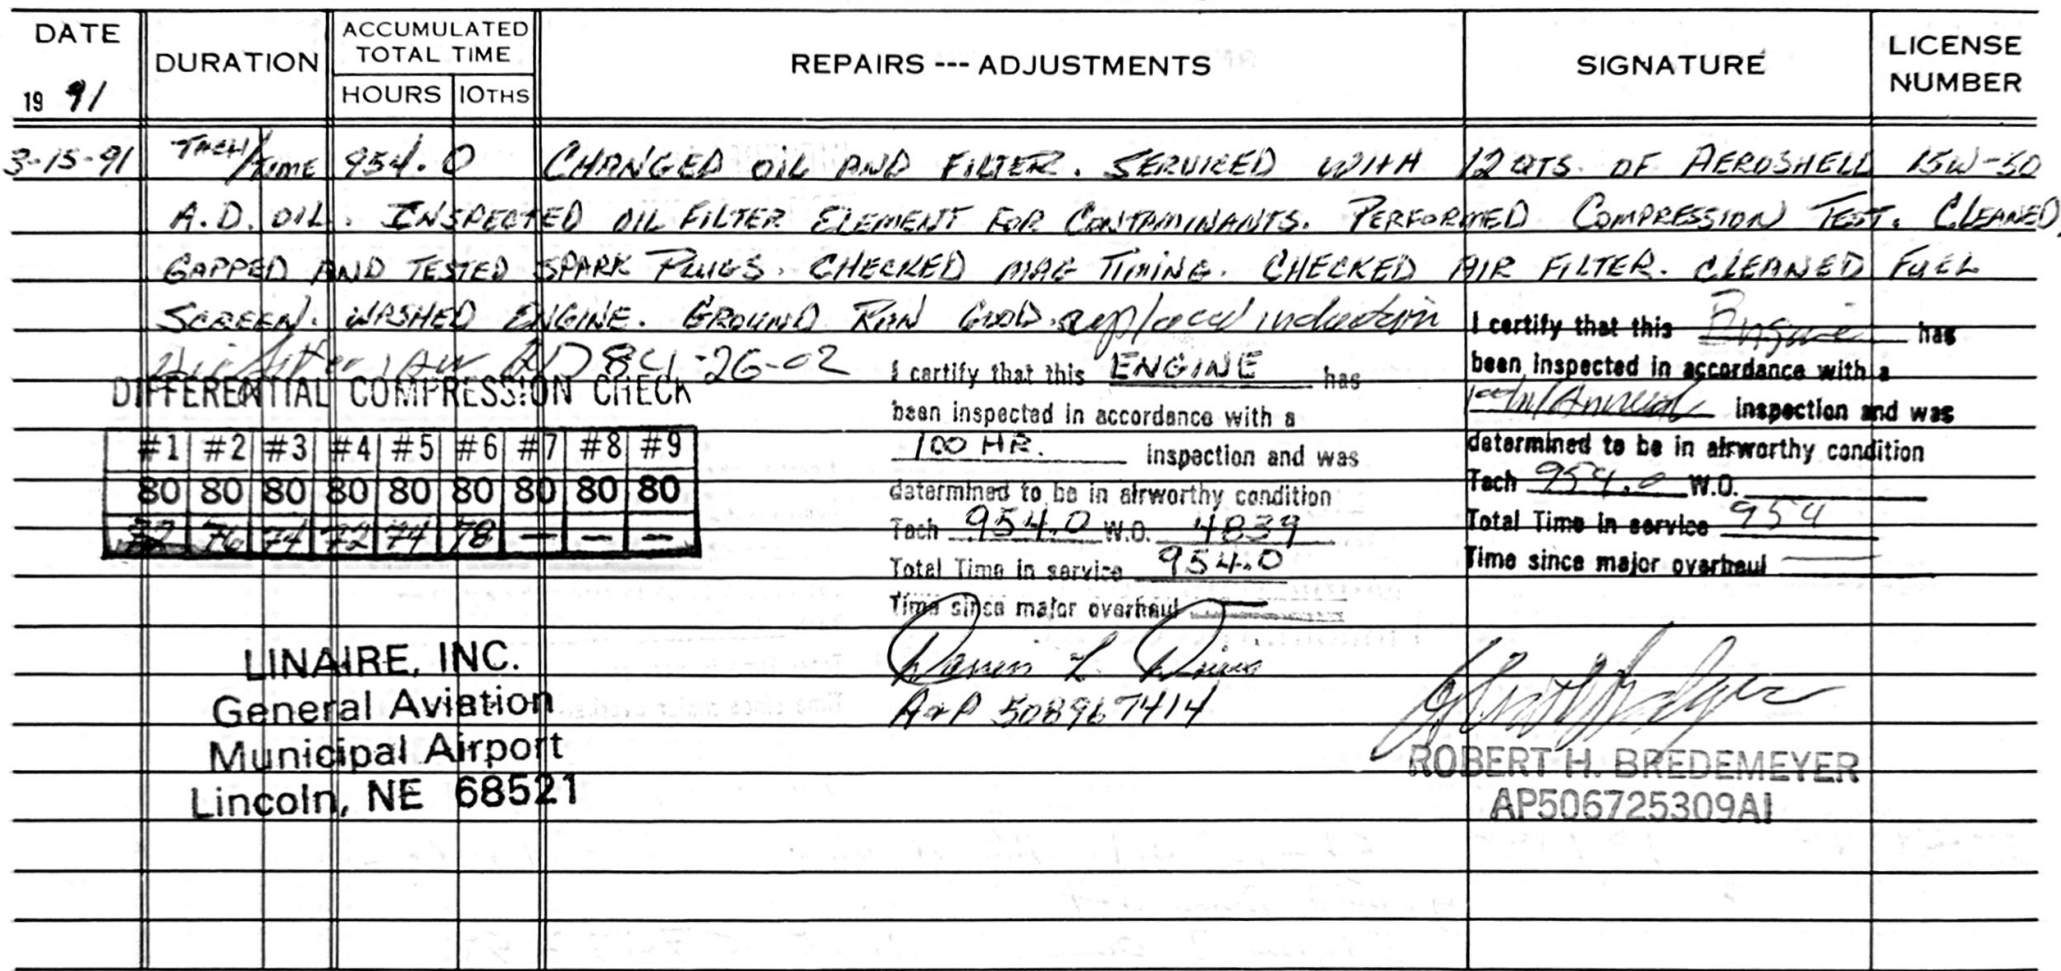 DATE
19 91
DURATION
ACCUMULATED
TOTAL TIME
HOURS 10THS
REPAIRS --- ADJUSTMENTS
SIGNATURE
LICENSE
NUMBER
3-15-91 TACH/TIME 954.0 CHANGED OIL AND FILTER. SERVICED WITH 12 QTS. OF AEROSHELL 15W-50
A.D. OIL. INSPECTED OIL FILTER ELEMENT FOR CONTAMINANTS. PERFORMED COMPRESSION TEST. CLEANED,
GAPPED AND TESTED SPARK PLUGS. CHECKED MAG TIMING. CHECKED AIR FILTER. CLEANED FUEL
SCREEN. WASHED ENGINE. GROUND RUN GOOD. replaced induction
air filter IAW AD 84-26-02
DIFFERENTIAL COMPRESSION CHECK
#1 #2 #3 #4 #5 #6 #7 #8 #9
80 80 80 80 80 80 80 80 80
76 74 72 74 78 — — —
I certify that this ENGINE has
been inspected in accordance with a
100 HR. inspection and was
determined to be in airworthy condition
Tach 954.0 W.O. 4839
Total Time in service 954.0
Time since major overhaul
A&P 508967414
I certify that this Engine has
been inspected in accordance with a
Annual inspection and was
determined to be in airworthy condition
Tach 954.0 W.O.
Total Time in service 954
Time since major overhaul
ROBERT H. BREDEMEYER
AP506725309AI
LINAIRE, INC.
General Aviation
Municipal Airport
Lincoln, NE 68521